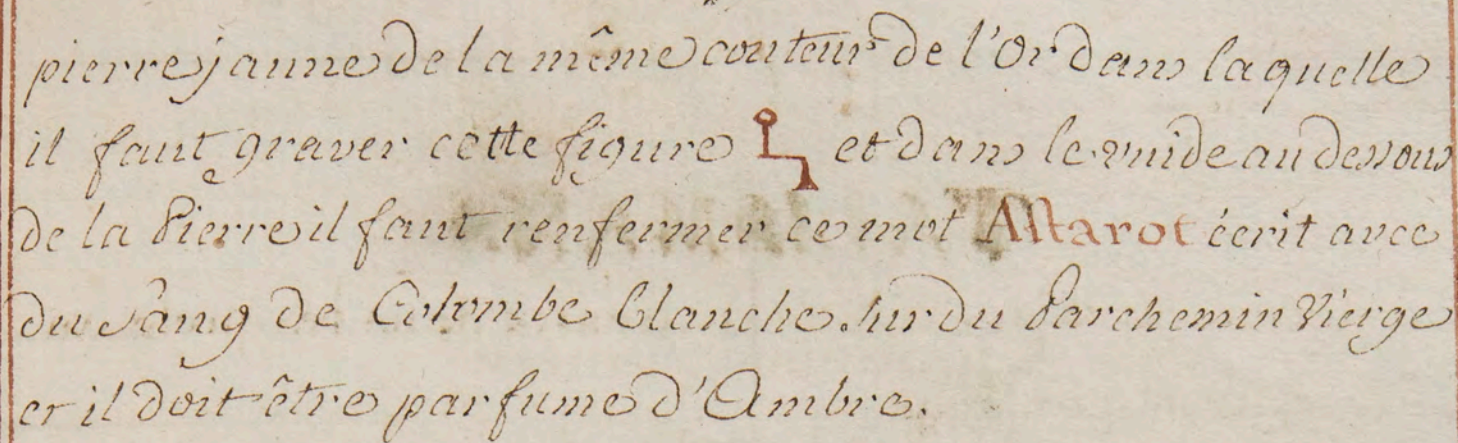 pierre jaune de la même couteur de l'Or dans laquelle
il faut graver cette figure et dans le vuide au dessous
de la Pierre il faut renfermer ce mot Astarot écrit avec
du Sâng de Colombe blanche. sur du Parchemin Vierge
et il doit être parfume d'Ambre.